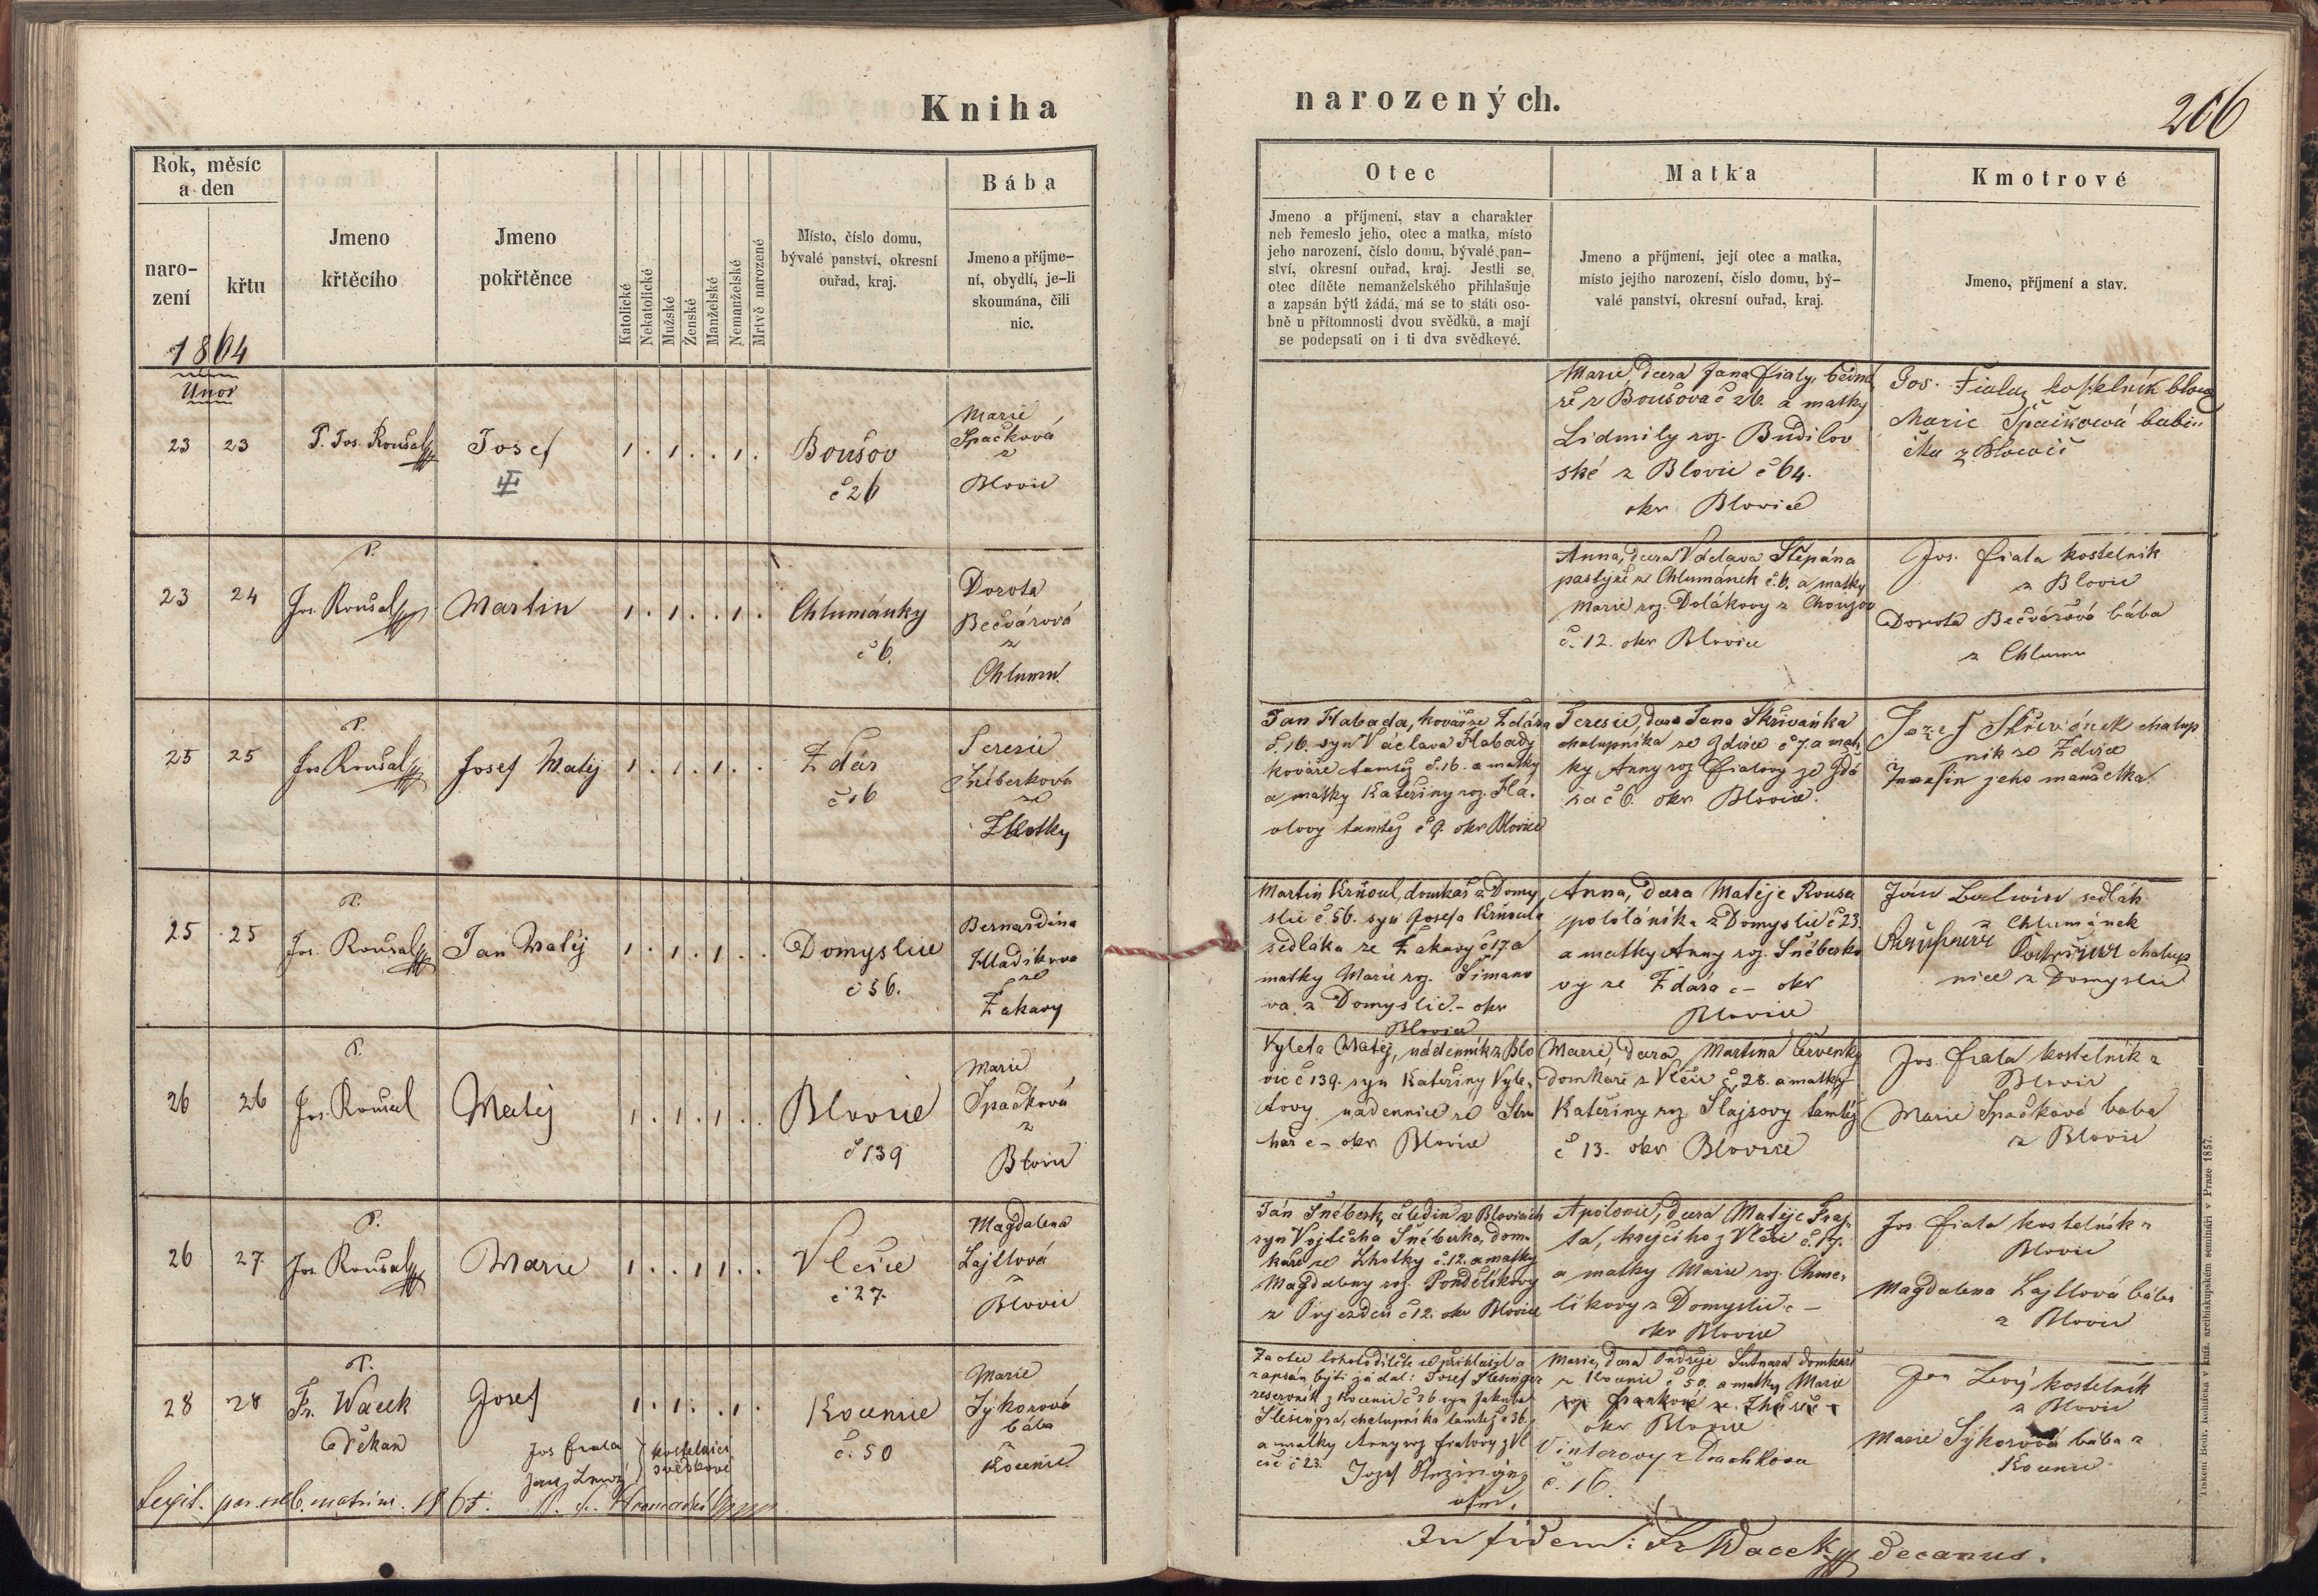 Kniha
narozených.
206
Rok, měsíc
a den
naro-
zení
křtu
Jmeno
křtěcího
Jmeno
pokřtěnce
Katolické
Nekatolické
Mužské
Ženské
Manželské
Nemanželské
Mrtvě narozené
Místo, číslo domu,
bývalé panství, okresní
ouřad, kraj.
Bába
Jmeno a příjme-
ní, obydlí, je-li
skoumána, čili
nic.
Otec
Jmeno a příjmení, stav a charakter
neb řemeslo jeho, otec a matka, místo
jeho narození, číslo domu, bývalé pan-
ství, okresní ouřad, kraj. Jestli se
otec dítěte nemanželského přihlašuje
a zapsán býti žádá, má se to státi oso-
bně u přítomnosti dvou svědků, a mají
se podepsati on i ti dva svědkové.
Matka
Jmeno a příjmení, její otec a matka,
místo jejího narození, číslo domu, bý-
valé panství, okresní ouřad, kraj.
Kmotrové
Jmeno, příjmení a stav.
1864
Unor
23 23 P. Jos. Roušal Josef 1 . 1 . . 1 .
Boušov
č 26
Marie
Spačková
z
Blovic
Marie dcera Jana Fialy, bedná
ře z Boušova č 26. a matky
Lidmily roz. Budilov
ské z Blovic č 64.
okr Blovice
Jos. Fiala kostelník
Marie Špačková babi
čka z
23 24 P.
Jos. Roušal Martin 1 . 1 . . 1 .
Chlumánky
č 6.
Dorota
Bečvárová
z
Chlumu.
Anna, dcera Václava Štěpána
pastýře z Chlumánek č. 6. a matky
Marie roz. Dolákovy z Chouzov
č. 12. okr Blovice
Jos. Fiala kostelník
z Blovic
Dorota Bečvářová bába
z Chlumu
25 25 P.
Jos Roušal Josef Matěj 1 . 1 . 1 . .
Ždár
č 16
Teresie
ze
Zhotky
Jan Habada, kovář ze Ždára
č. 16. syn Václava Habady
kováře tamtéž č. 16. a matky
a matky Kateřiny roz. Hla-
volovy tamtéž č 9. okr Blovice
Teresie, dcera Jana Skřivánka
chalupníka ze Zdirce č 7. a mat
ky Anny roz Fialovy ze Ždá
ra č 6. okr Blovice.
Jozef Skřivánek chalup
ník ze Zdirce
jeho manželka
25 25 P.
Jos. Roušal Jan Matěj 1 . 1 . 1 . .
Domyslice
č 56.
Bernardina
Hladíkova
ze
Žakavy
Martin Krňoul, domkář z Domy
slic č 56. syn Josefa Krňoula
sedláka ze Žakavy č 17 a
matky Marie roz. Šimano
va z Domyslic - okr
Blovice
Anna, dcera Matěje Rousa
pololáníka z Domyslic č 23.
a matky Anny roz. Šnéberko
vy ze Ždára č - okr
Blovice
Ján sedlák
z Chlumánek
chalup
nice z Domyslic
26 26 P.
Jos. Roušal Matěj 1 . 1 . 1 . .
Blovice
č 139
Marie
Spačková
z
Blovic
Vyleta Matěj, nádenník z Blo
vic č 139. syn Kateřiny Vyle-
tovy nádennice ze Stru
hař č - okr Blovice
Marie, dcera Martina Červenky
domkaře z Vlčic č. 28. a matky
Kateřiny roz Šlajsovy tamtéž
č 13. okr Blovice
Jos. Fiala kostelník z
Blovic
Marie Špačková baba
z Blovic
26 27. P.
Jos. Roušal Marie 1 . . 1 1 . .
Vlčice
č 27.
Magdalena
Lajtlová
z
Blovic
Ján Šnéberk, čeledín v Blovicích
syn Vojtěcha Šnéberka, dom-
káře ze Zhotky č. 12. a matky
Magdaleny roz. Pondělíkovy
z Oujezdců č 12. okr Blovice
Apolonie, dcera Matěje Fraj-
ta, krejčího z Vlčic č. 17.
a matky Marie roz. Chme-
líkovy z Domyslic č -
okr Blovice
Jos. Fiala kostelník z
Blovic
Magdalena Lajtlová bába
z Blovic
28 28 P.
Fr. Wacek
děkan
Josef 1 . 1 . . 1 .
Kocenice
č. 50
Marie
Sýkorová
bába
z
Kocenic
Jos Fiala } kostelníci
svědkové
Za otce tohoto dítěte se přihlásil a
zapsán býti žádal: Josef Šlesinger
reservník z Kocenic č 36. syn Jakuba
Šlesingra, chalupníka tamtéž č 36.
a matky Anny roz Fialovy z Vl
čic č 23.
otec.
Marie, dcera Ondřeje domkáře
z Kocenic č 50. a matky Marie
roz. Frankové ze
okr Blovice
Vinterovy z Drachkova
č. 16.
Jan kostelník
z Blovic
Marie Sýkorová bába z
Kocenic
Legit. per subs. matrim. 1865.
In fidem: Fr Wacek decanus.
Tiskem Bedř. Rohlíčka v kníž. arcibiskupském semináři v Praze 1857.